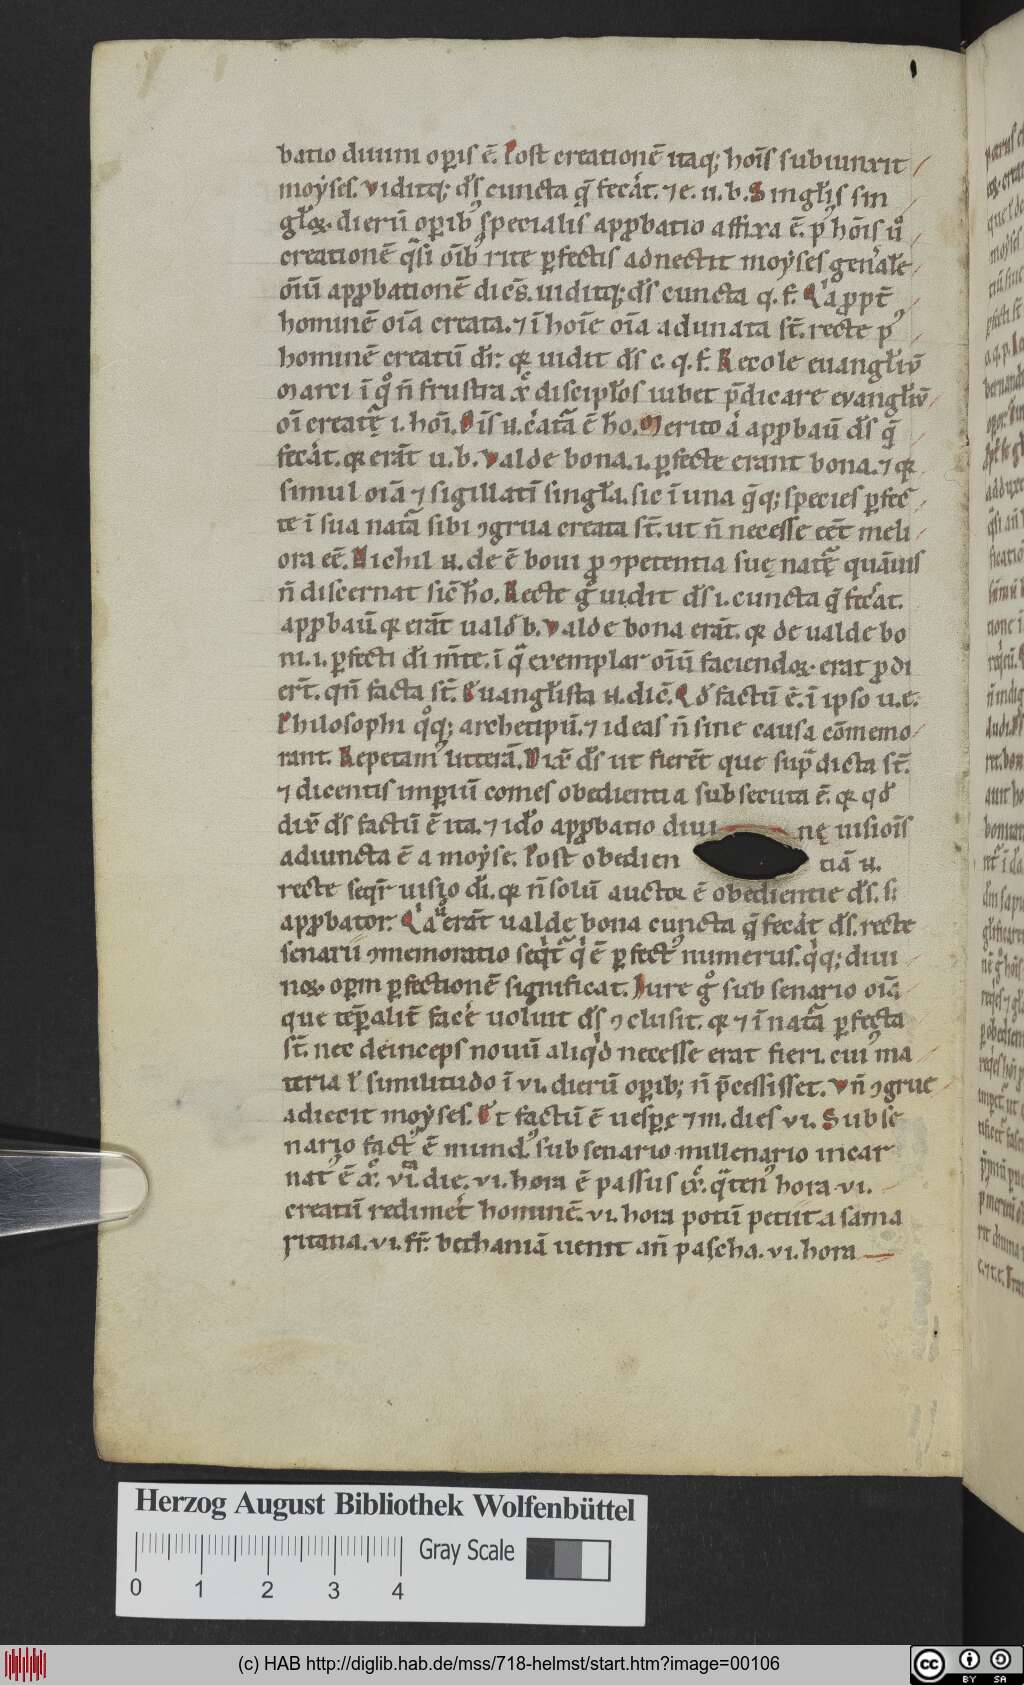 batio diuini op̲is ē. Post creationē itaq; hoı̄s subiunxit
moẏses. Viditq; d̄s cuncta q̄ fec̓at. ⁊ e. u. b. Singłis sin
głoꝝ. dierū op̲ib᾽ specialis app̲batio affixa ē. p᾽ hoı̄s ů
creationē q̄si oı̄b᾽ rite p̲fectis adnectit moẏses gen̓ale
oı̄ū app̲bationē dicē̄s. uiditq; d̄s cuncta q. f. Q̓a p̲pt̄
hominē oı̄a creata. ⁊ ı̄ hoı̄e oı̄a adunata st̄. recte p᾽
hominē creatū dr̄. qꝫ uidit d̄s c. q. f. Recole euangłiū
Marci ı̄ q̊ n̄ frustra xp̄c discipłos iubet p̄dicare evangłiū
oı̄ creatᵉ̨ .i. hoı̄. Oı̄s u. c̓atᵃ̄ ē ho̅. Merito ȧ app̲bauı̄ d̄s q̄
fec̓at. qꝫ erāt u. b. Valde bona .i. p̲fecte erant bona. ⁊ qꝫ
simul oı̄a ⁊ sigillatı̄ singła. sic ı̄ una q̄q; species p̲fec
te ı̄ sua natᵃ̄ sibi ꝯgrua creata st̄. ut n̄ necesse eēt meli
ora eē. Nichil u. de ē boui p̲ ꝯpetentia suę natᵉ̨ quāuis
n̄ discernat sic̄ ho̅. Recte g̊ uidit d̄s .i. cuncta q̄ fec̓at.
app̲bauı̄. qꝫ erāt uald̓ b. Valde bona erāt. qꝫ de ualde bo
ni. i. p̲fecti dı̄ m̄te. ı̄ q̄ exemplar oı̄ū faciendoꝝ. erat p̲di
er̄t. qn̄ facta st̄. Euangłista u. dic̄. Qd̓ factū ē. ı̄ ipso u. e.
Philosophi q̊q; archetipū. ⁊ ideas n̄ sine causa cōmemo
rant. Repetam᾽ litterā. Dix̄ d̄s ut fierēt que sup̄dicta st̄.
⁊ dicentis imp̲iū comes obedientia subsecuta ē. qꝫ qd̓
dix̄ d̄s factū ē ita. ⁊ ido app̲batio diui nę uisioı̄s
adiuncta ē a moẏse. Post obedien tiā u.
recte seqr̓ uisio dı̄. qꝫ n̄ solū auctor ē obedientie d̄s. sꝫ
app̲bator. Q̓a u̓ erāt ualde bona cuncta q̄ fec̓at d̄s. recte
senarii ꝯmemoratio seq̓tᵘ̄ q̓ ē p̲fect᾽ numerus. q̓q; diui
noꝝ. op̲m p̲fectionē significat. Jure g̊ sub senario oı̄a
que tēp̲alit̄ fac̓e uoluit d̄s ꝯclusit. qꝫ ⁊ ı̄ natᵃ̄ p̲fecta
st̄. nec deinceps nouū aliq̓d necesse erat fieri. cui᾽ ma
teria ł similitudo ı̄ vi. dierū op̲ib; n̄ p̄cessisset. Vn̄ ꝯgrue
adiecit moẏses. Et factū ē uesp̲e ⁊ m. dies vi. Sub se
nario fact᾽ ē mund᾽ sub senario millenario incar
nat᾽ ē xp̄c. vi. die. vi. hora ē passus xp̄c. q̄ten᾽ hora vi.
creatū redimet̓ hominē. vi. hora potū petiit a sama
ritana. vi. fr̄. bethaniā uenit an̄ pascha. vi. hora
Herzog August Bibliothek Wolfenbüttel
Gray Scale
0 1 2 3 4
(c) HAB http://diglib.hab.de/mss/718-helmst/start.htm?image=00106
cc BY SA